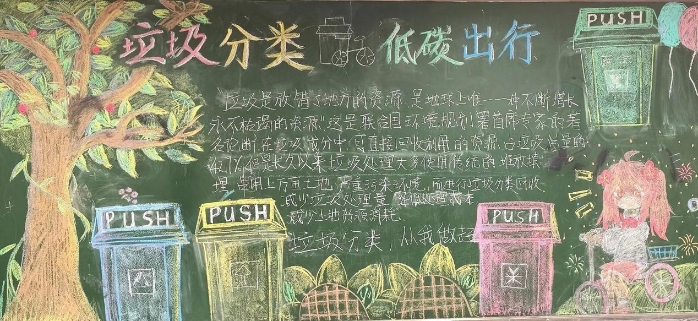 垃圾分类 低碳出行
PUSH
垃圾是放错了地方的资源,是地球上唯一一种不断增长
永不枯竭的资源!这是联合国环境规划署首席专家的著
名论断,在垃圾成分中,可直接回收利用的资源占垃圾总量的
但长久以来垃圾处理大多使用传统的堆放填
埋,占用上万亩土地,严重污染环境,而进行垃圾分类回收
减少垃圾处理量
减少土地资源消耗
垃圾分类,从我做起
PUSH
PUSH
PUSH